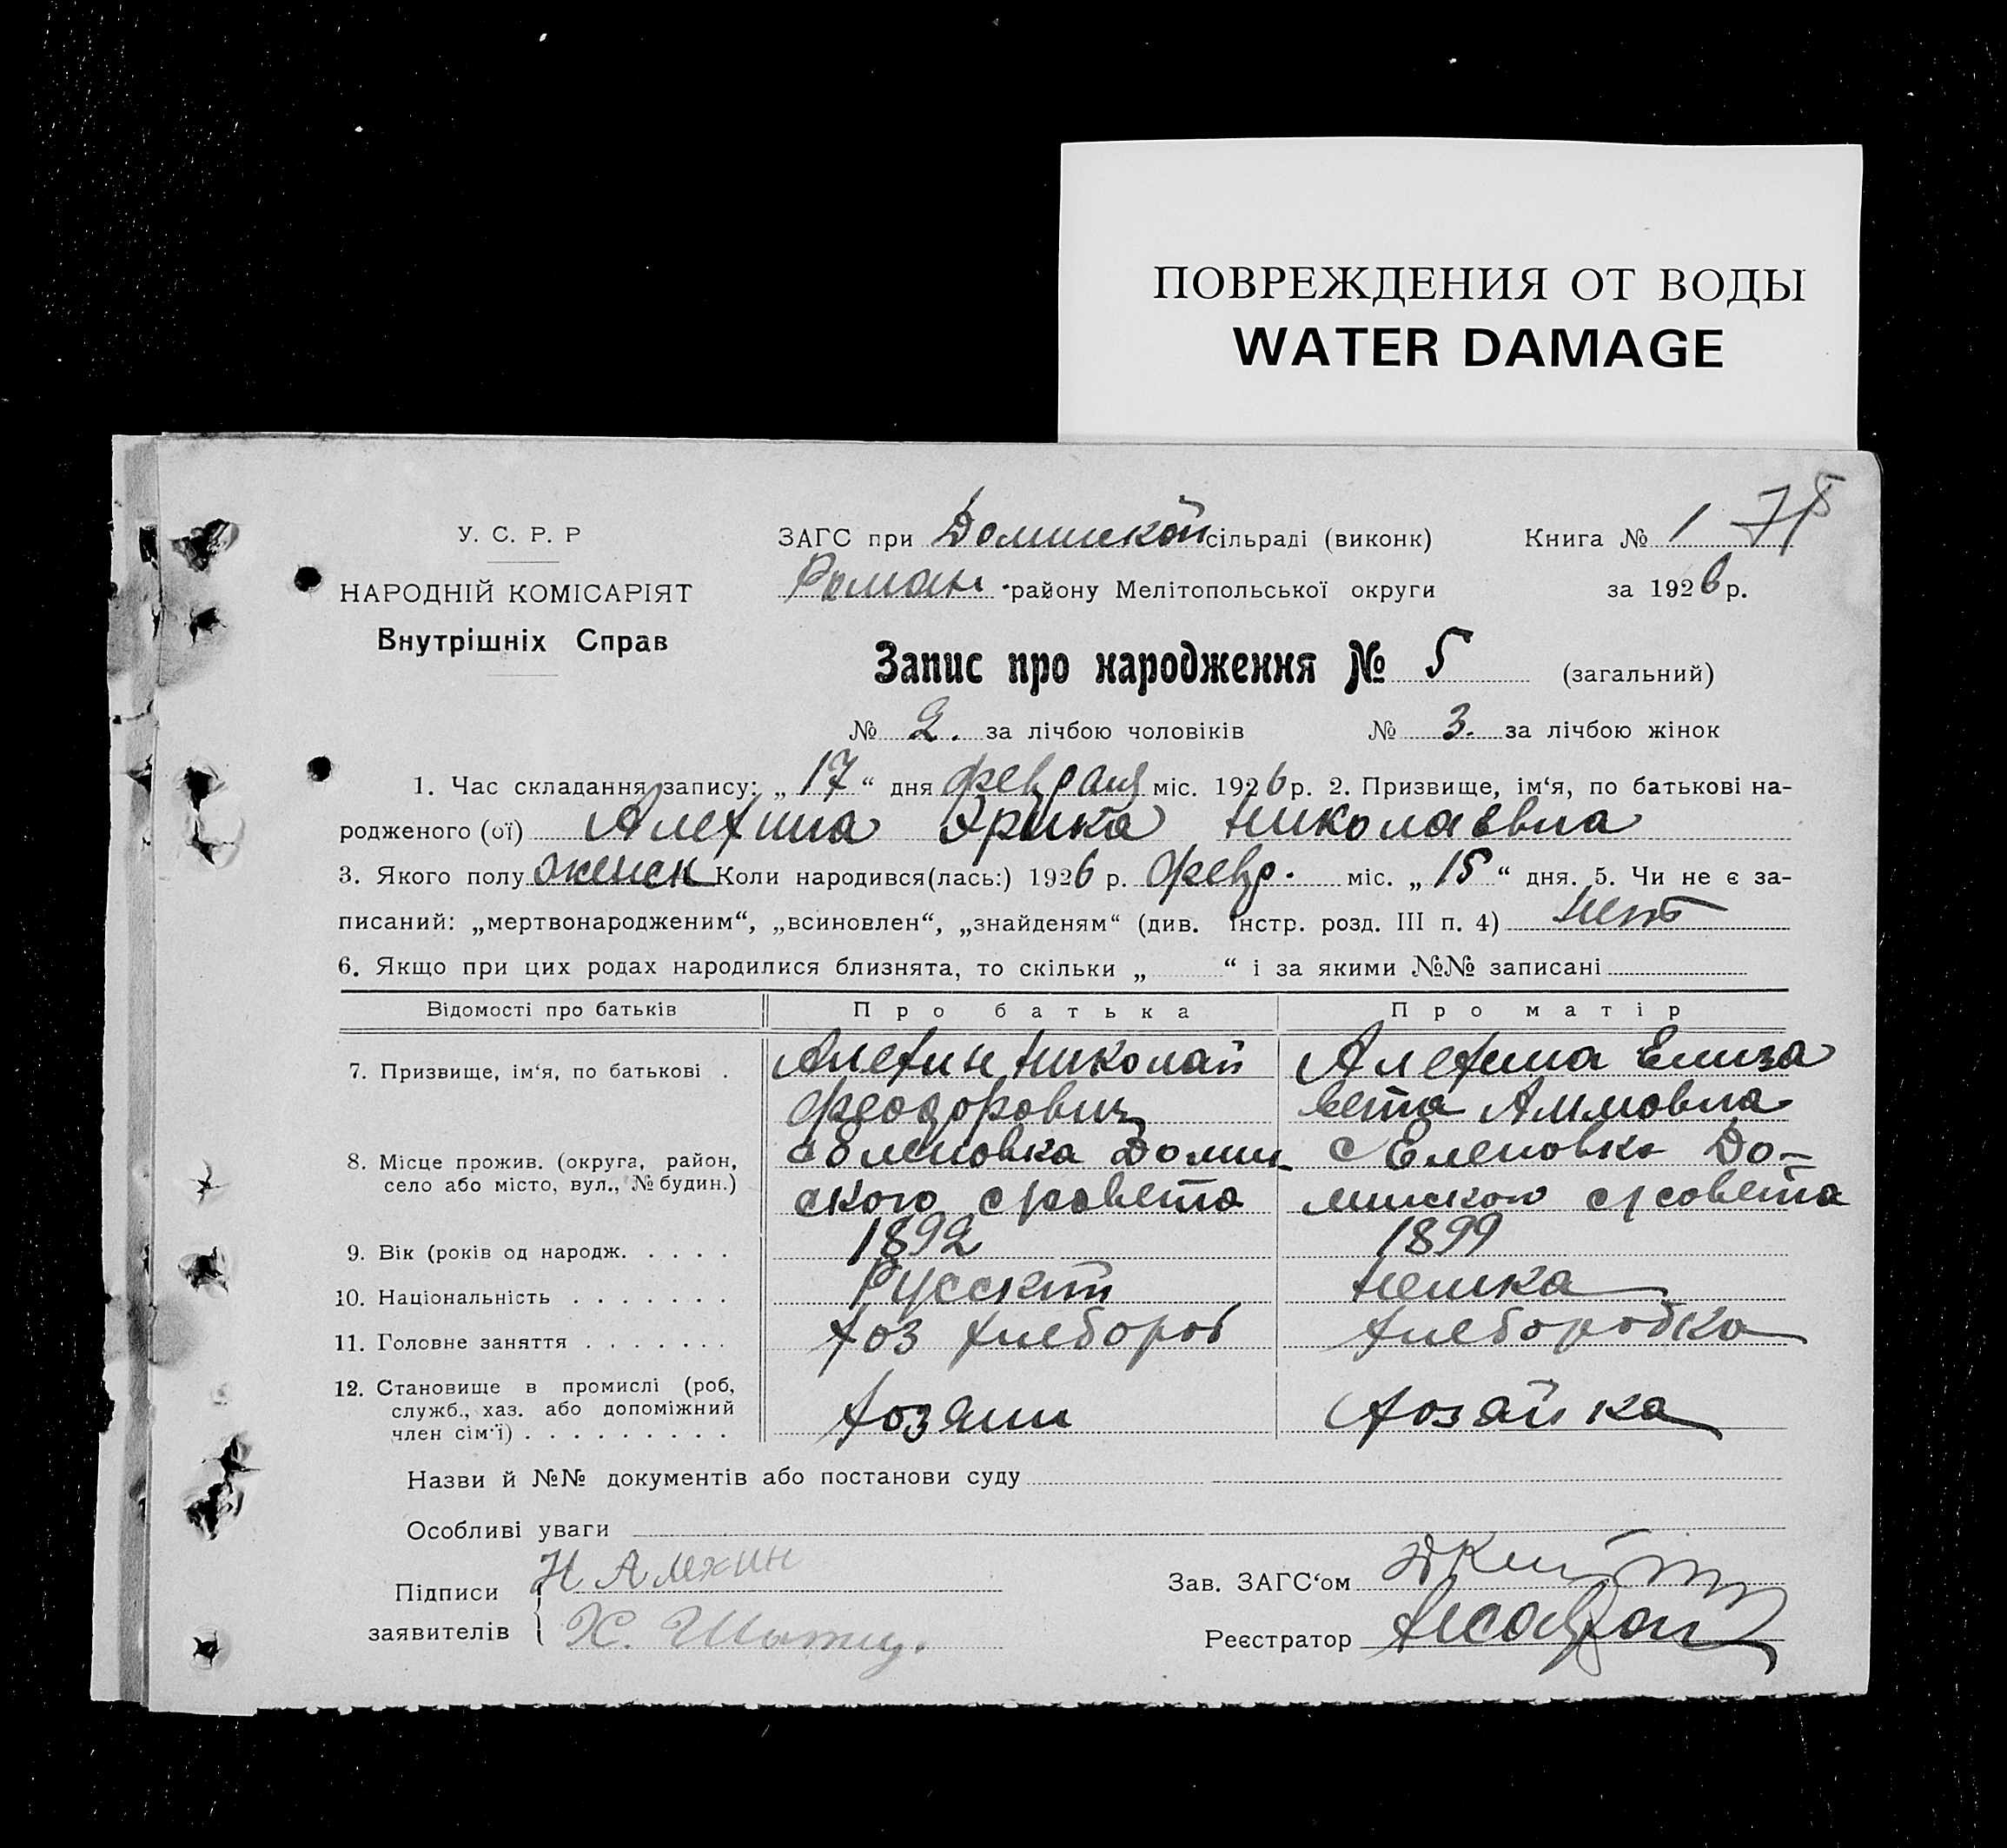 ПОВРЕЖДЕНИЯ ОТ ВОДЫ
WATER DAMAGE
У. С. Р. Р
НАРОДНІЙ КОМІСАРІЯТ
Внутрішніх Справ
ЗАГС при Доминской сільраді (виконк) Книга № 1
Роман. району Мелітопольської округи за 1926 р.
Запис про народження № 5 (загальний)
№ 2. за лічбою чоловіків № 3. за лічбою жінок
1. Час складання запису: „17“ дня февраля міс. 1926 р. 2. Призвище, ім‘я, по батькові на-
родженого (ої) Алехина Эрика Николаевна
3. Якого полу женск Коли народився(лась:) 1926 р. февр. міс. „15“ дня. 5. Чи не є за-
писаний: „мертвонародженим“, „всиновлен“, „знайденям“ (див. Інстр. розд. III п. 4) нет
6. Якщо при цих родах народилися близнята, то скільки „ “ і за якими №№ записані
Відомості про батьків Про батька Про матір
7. Призвище, ім‘я, по батькові . Алехин Николай Алехина Елиза
Феодорович вета Адамовна
8. Місце прожив. (округа, район, село або місто, вул., № будин.) с Еленовка Домин с Еленовка До-
ского с/совета минского с/совета
9. Вік (років од народж. . . . . 1892 1899
10. Національність . . . . . . . Русский Немка
11. Головне заняття . . . . . . . хоз хлебороб хлеборобка
12. Становище в промислі (роб,
служб., хаз. або допоміжний
член сім‘ї) . . . . . . . . . хозяин хозяйка
Назви й №№ документів або постанови суду
Особливі уваги
Підписи Н Алехин Зав. ЗАГС‘ом
заявителів { Реєстратор